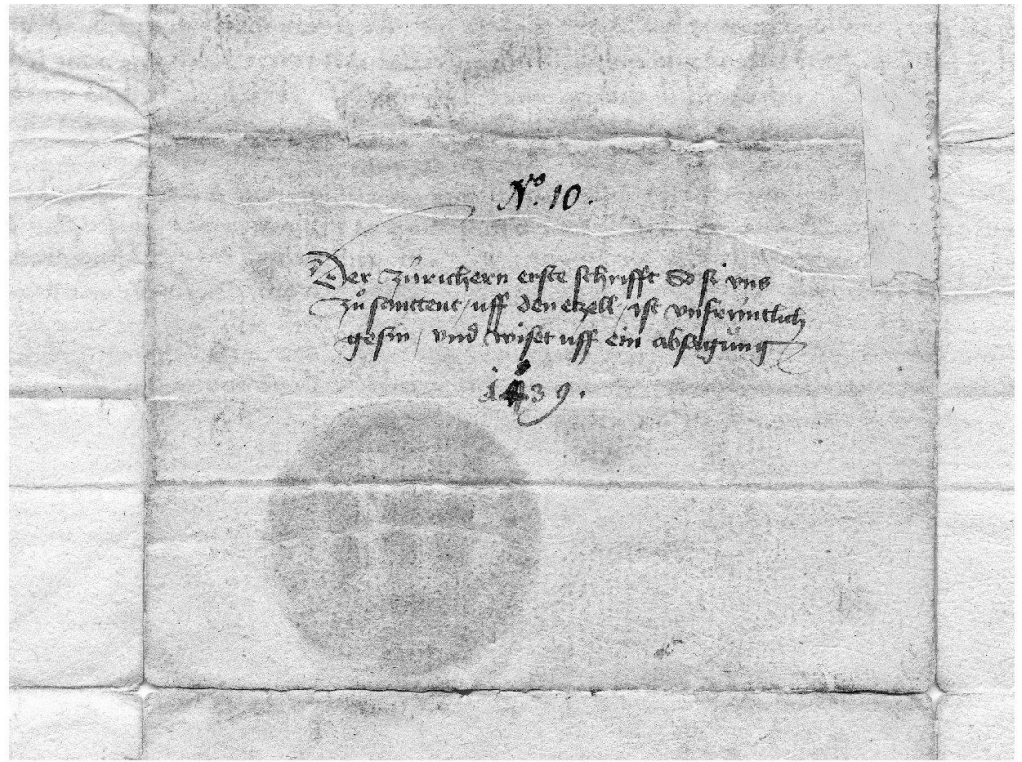 No. 10.
Der zürichern erste schrifft So si vns
zůsanttent / uff den etzell / ist vnfrüntlich
gesin / vnd wiset uff ein absagůng
1439.